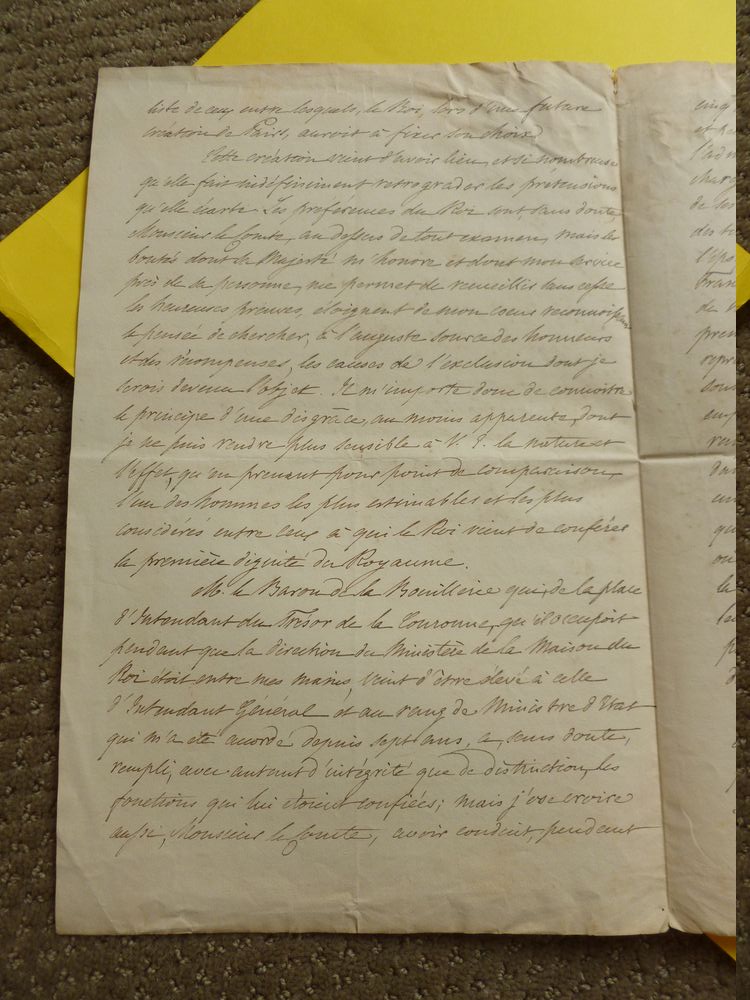 liste de ceux entre lesquels, le Roi, lors d'une future
création de Pairs, auroit à fixer son choix.
Cette création vient d'avoir lieu, et si nombreuse
qu'elle fait indéfiniment retrograder les prétensions
qu'elle écarte. Les préférences du Roi sont sans doute,
Monsieur le Comte, au dessus de tout examen, mais les
bontés dont sa Majesté m'honore et dont mon service
près de sa personne, me permet de recueillir sans cesse
les heureuses preuves, éloignent de mon coeur reconnaissant
la pensée de chercher, à l'auguste source des honneurs
et des récompenses, les causes de l'exclusion dont je
serois devenu l'objet. Il m'importe donc de connoitre
le principe d'une disgrâce, au moins apparente, dont
je ne puis rendre plus sensible à V. E. la nature et
l'effet, qu'en prenant pour point de comparaison,
l'un des hommes les plus estimables et les plus
considérés entre ceux à qui le Roi vient de conférer
la première dignité du Royaume.
M. le Baron de la Bouillerie qui, de la place
d'Intendant du Trésor de la Couronne, qu'il occupoit
pendant que la direction du Ministère de la Maison du
Roi étoit entre mes mains, vient d'être élevé à celle
d'Intendant Général et au rang de Ministre d'Etat
qui m'a été accordé depuis sept ans, a, sans doute,
rempli, avec autant d'intégrité que de distinction, les
fonctions qui lui étoient confiées; mais j'ose croire
aussi, Monsieur le Comte, avoir conduit, pendant